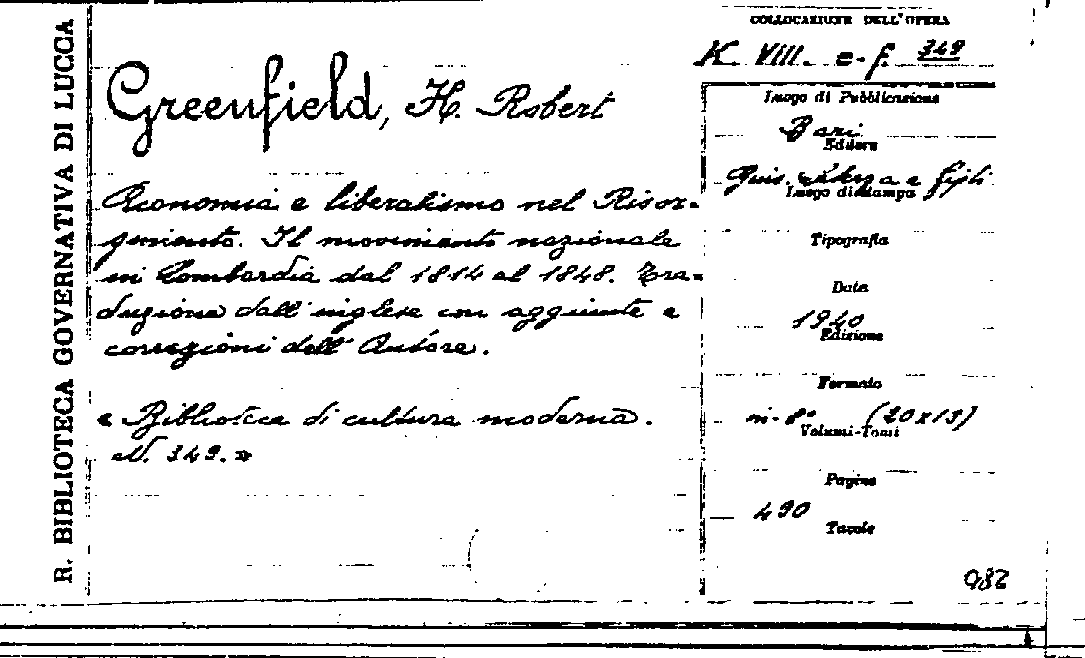 R. BIBLIOTECA GOVERNATIVA DI LUCCA
COLLOCAZIONE DELL'OPERA
K. VIII. e. f. 349
Greenfield, H. Robert
Economia e liberalismo nel Risor-
gimento. Il movimento nazionale
in Lombardia dal 1814 al 1848. Tra-
duzione dall'inglese con aggiunte e
correzioni dell'Autore.
« Biblioteca di cultura moderna.
N. 349. »
Luogo di Pubblicazione
Bari
Editore
Gius. Laterza e figli
Luogo di stampa
Tipografia
Data
1940
Edizione
Formato
in-8° (20x13)
Volumi-Tomi
Pagine
490
Tavole
082